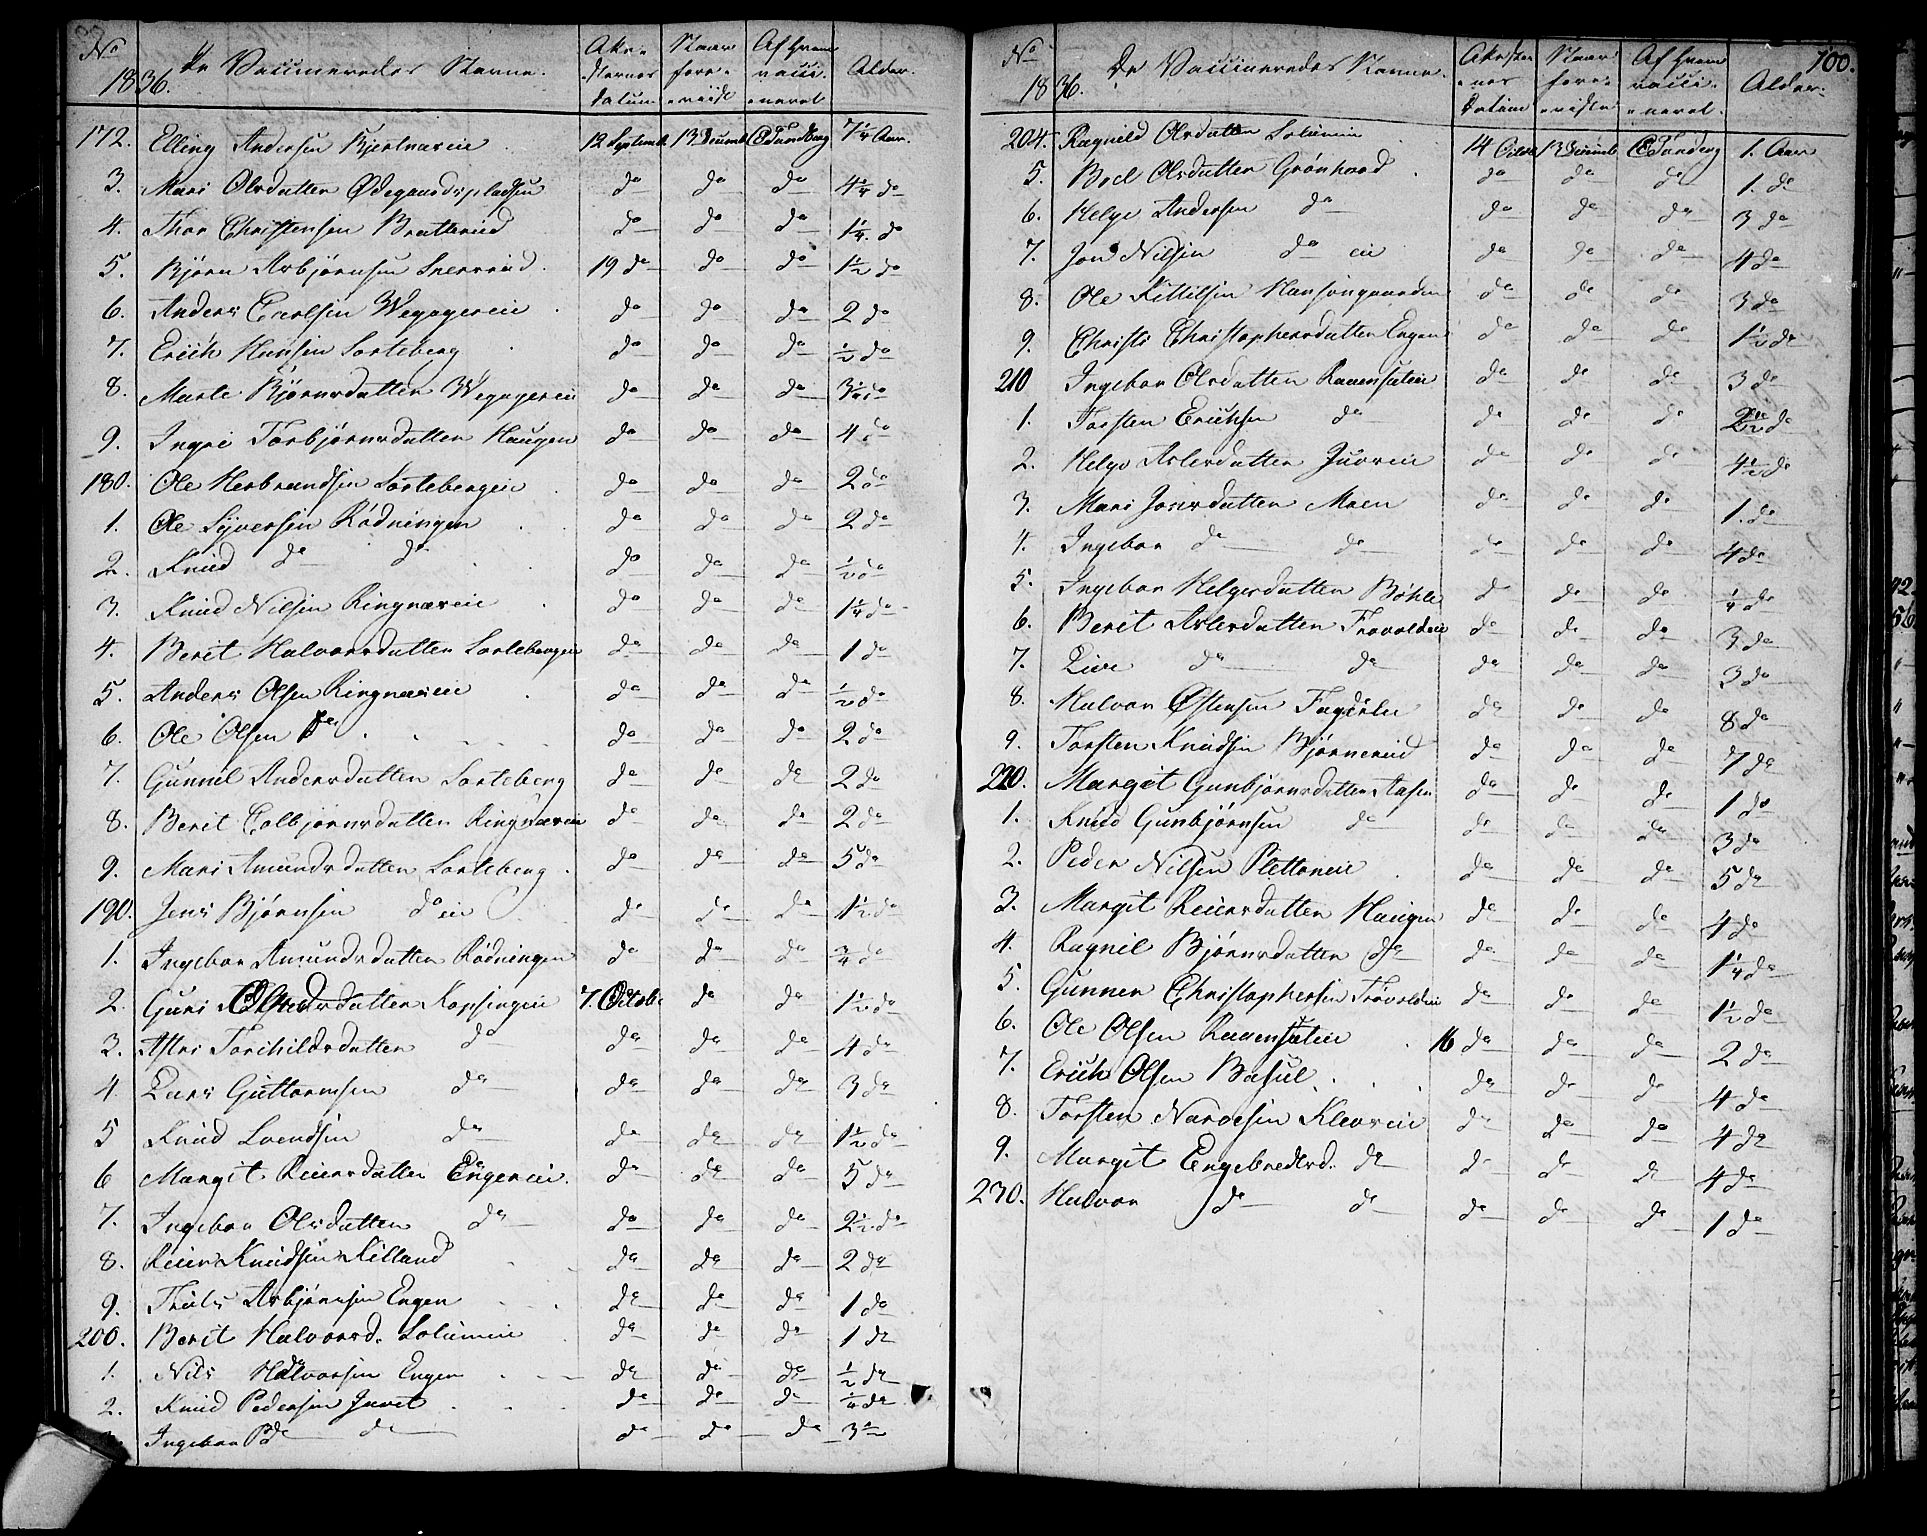 No 1836. De Vaccineredes Navne. Atte-sternes datum Naar fore-viist Af hvem vacci-neret Alder.
172. Elling Andersen 12 Septemb. 13 Decemb. E Tandberg 7 1/4 Aar.
3. Mari Olsdatter Ødegaardspladsen do do do 4 1/4 do
4. Thor Christensen Bratterud do do do 1 1/4. do
5. Bjørn Asbjørnsen 19 do do do 1 1/2 do
6. Anders Carlsen do do do 2 do
7. Erich Hansen Sorteberg do do do 1/2 do
8. Marte Bjørnsdatter do do do 3 1/2 do
9. Ingri Torbjørnsdatter Haugen do do do 4 do
180. Ole Herbrandsen Sortebergeie do do do 2 do
1. Ole Syversen Rødningen do do do 2 do
2. Knud do do do do do 1/2 do
3. Knud Nilsen Ringnæseie do do do 1 1/4 do
4. Berit Halvorsdatter Sortebergeie do do do 1 do
5. Anders Olsen Ringnæseie do do do 1/2 do
6. Ole Olsen do do do do 2 do
7. Gunnil Andersdatter Sorteberg do do do 2 do
8. Berit Colbjørnsdatter Ringnæseie do do do 2 do
9. Mari Amundsdatter Sorteberg do do do 5 do
190. Jens Bjørnsen do eie do do do 1 1/2 do
1. Ingebor Amundsdatter Rødningen do do do 3/4 do
2. Guri Kopsengeie 7. Octobr do do 1 1/2 do
3. Astri Torchildsdatter do do do do 4 do
4. Lars Guttormsen do do do do 3 do
5 Knud Svendsen do do do do 1 1/2 do
6 Margit Reiersdatter Engereie. do do do 5 do
7. Ingebor Olsdatter do do do do 2 1/2 do
8. Reier Knudsen Killand do do do 2 do
9. Truls Asbjørnsen Engen do do do 1 do
200. Berit Halvorsd. Solumeie do do do 1 do
1. Nils Halvorsen Engen do do do 1/2 do
2. Knud Pedersen Juvet do do do 1/4 do
Ingebor P do do do do do 3 do
100.
No 1836. De Vaccineredes Navne. Attester-nes Datum Naar fore-vister Af hvem vacci-neret. Alder.
204. Ragnild Olsdatter Solumeie 14 Octobr 13 Decemb E Tandberg 1. Aar
5. Boel Olsdatter Grønhovd do do do 1. do
6. Helge Andersen do do do do 3 do
7. Jon Nilsen do eie do do do 4 do
8. Ole Kittilsen Hansongaarden do do do 3 do
9. Christi Christophersdatter Engen do do do 1 1/2 do
210 Ingebor Olsdatter Raaenseteie do do do 3 do
1. Torsten Erichsen do do do do 2 1/2 do
2. Helge Aslesdatter Juveie do do do 4 1/2 do
3. Mari Jonsdatter Moen do do do 1. do
4. Ingebor do do do do do 4 do
5. Ingebor Helgesdatter Böhle do do do 1/4 do
6. Berit Aslesdatter Trovoldeie do do do 3 do
7. Live do do do do do 3 do
8. Halvor Østensen Fagerlie do do do 8 do
9. Torsten Knudsen Bjørnerud do do do 7 do
220. Margit Gunbjørnsdatter Aasen do do do 1 do
1. Knud Gunbjørnsen do do do do 3 do
2. Peder Nilsen Pletteneie do do do 5 do
3. Margit Reiersdatter Haugen do do do 4 do
4. Ragnil Bjørnsdatter do do do do 1 1/4 do
5. Gunner Christophersen Trovoldeie do do do 1 1/2 do
6. Ole Olsen Raaenseteie 16 do do do 2 do
7. Erich Olsen do do do 4 do
8. Torsten Narvesen Kleveie do do do 4 do
9. Margit Engebredtsd. do do do do 4 do
230. Halvor do do do do do 1 do